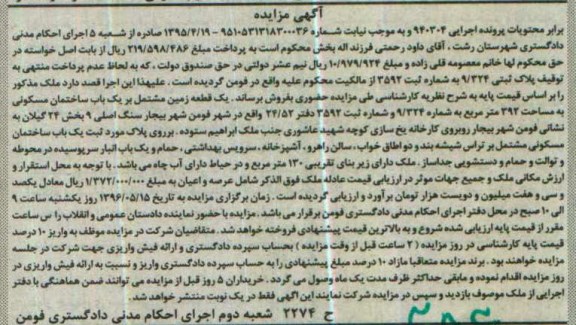 آگهی مزایده
برابر محتویات پرونده اجرایی ۹۴۰۳۰۴ و به موجب نیابت شماره ۹۵۱۰۵۳۱۳۱۸۳۰۰۰۳۶ صادره از شعبه ۵ اجرای احکام مدنی
دادگستری شهرستان رشت ، آقای داود رحمتی فرزند اله بخش محکوم است به پرداخت مبلغ ۲۱۹/۵۹۸/۴۸۶ ریال از بابت اصل خواسته در
حق محکوم لها خانم معصومه قلی زاده و مبلغ ۱۰/۹۷۹/۹۲۴ ریال نیم عشر دولتی در حق صندوق دولت ، که به لحاظ عدم پرداخت منتهی به
توقیف پلاک ثبتی ۹/۳۲۴ به شماره ثبت ۳۵۹۲ از مالکیت محکوم علیه واقع در فومن گردیده است . علیهذا این اجرا قصد دارد ملک مذکور
را بر اساس قیمت پایه به شرح نظریه کارشناسی طی مزایده حضوری بفروش برساند . یک قطعه زمین مشتمل بر یک باب ساختمان مسکونی
به مساحت ۳۹۲ متر مربع به شماره ۹/۳۲۴ و شماره ثبت ۳۵۹۲ دفتر ۲۴/۵۲ واقع در شهر فومن شهر بیجار سنگ اصلی ۹ بخش ۲۴ گیلان به
نشانی فومن شهر بیجار روبروی کارخانه یخ سازی کوچه شهید عاشوری جنب ملک ابراهیم ستوده . برروی پلاک مورد ثبت یک باب ساختمان
مسکونی مشتمل بر تراس شیشه بند و دو اطاق خواب ، سالن ، راهرو ، آشپزخانه ، سرویس بهداشتی ، حمام و یک باب انبار سرپوسیده در محوطه
و توالت و حمام و دستشویی جداساز . ملک دارای زیر بنای تقریبی ۱۳۰ متر مربع و در حیاط دارای آب چاه می باشد . با توجه به محل استقرار و
ارزش مکانی ملک و جمیع جهات موثر در ارزیابی قیمت عادله ملک فوق الذکر شامل عرصه و اعیان به مبلغ ۱/۳۷۲/۰۰۰/۰۰۰ ریال معادل یکصد
و سی و هفت میلیون و دویست هزار تومان برآورد و ارزیابی گردیده است . زمان برگزاری مزایده به تاریخ ۱۳۹۶/۰۵/۱۵ روز یکشنبه ساعت ۹
الی ۱۰ صبح در محل دفتر اجرای احکام مدنی دادگستری فومن برقرار می باشد . مزایده با حضور نماینده دادستان عمومی و انقلاب را س ساعت
مقرر از قیمت پایه ارزیابی شده شروع و به بالاترین قیمت پیشنهادی فروخته خواهد شد . متقاضیان شرکت در مزایده موظف به واریز ۱۰ درصد
قیمت پایه کارشناسی در روز مزایده ( ۲ ساعت قبل از وقت مزایده ) بحساب سپرده دادگستری و ارائه فیش واریزی جهت شرکت در جلسه
مزایده خواهند بود . برنده مزایده متعاقبا مازاد ۱۰ درصد مبلغ پیشنهادی را به حساب سپرده دادگستری واریز و نسبت به ارائه فیش واریزی در
روز مزایده اقدام نموده و مابقی حداکثر ظرف مدت یک ماه وصول می گردد . خریداران ۵ روز قبل از مزایده می توانند ضمن هماهنگی با دفتر
اجرایی از ملک موصوف بازدید و سپس در مزایده شرکت نمایند این آگهی فقط در یک نوبت منتشر خواهد شد .
ح ۲۲۷۴ شعبه دوم اجرای احکام مدنی دادگستری فومن